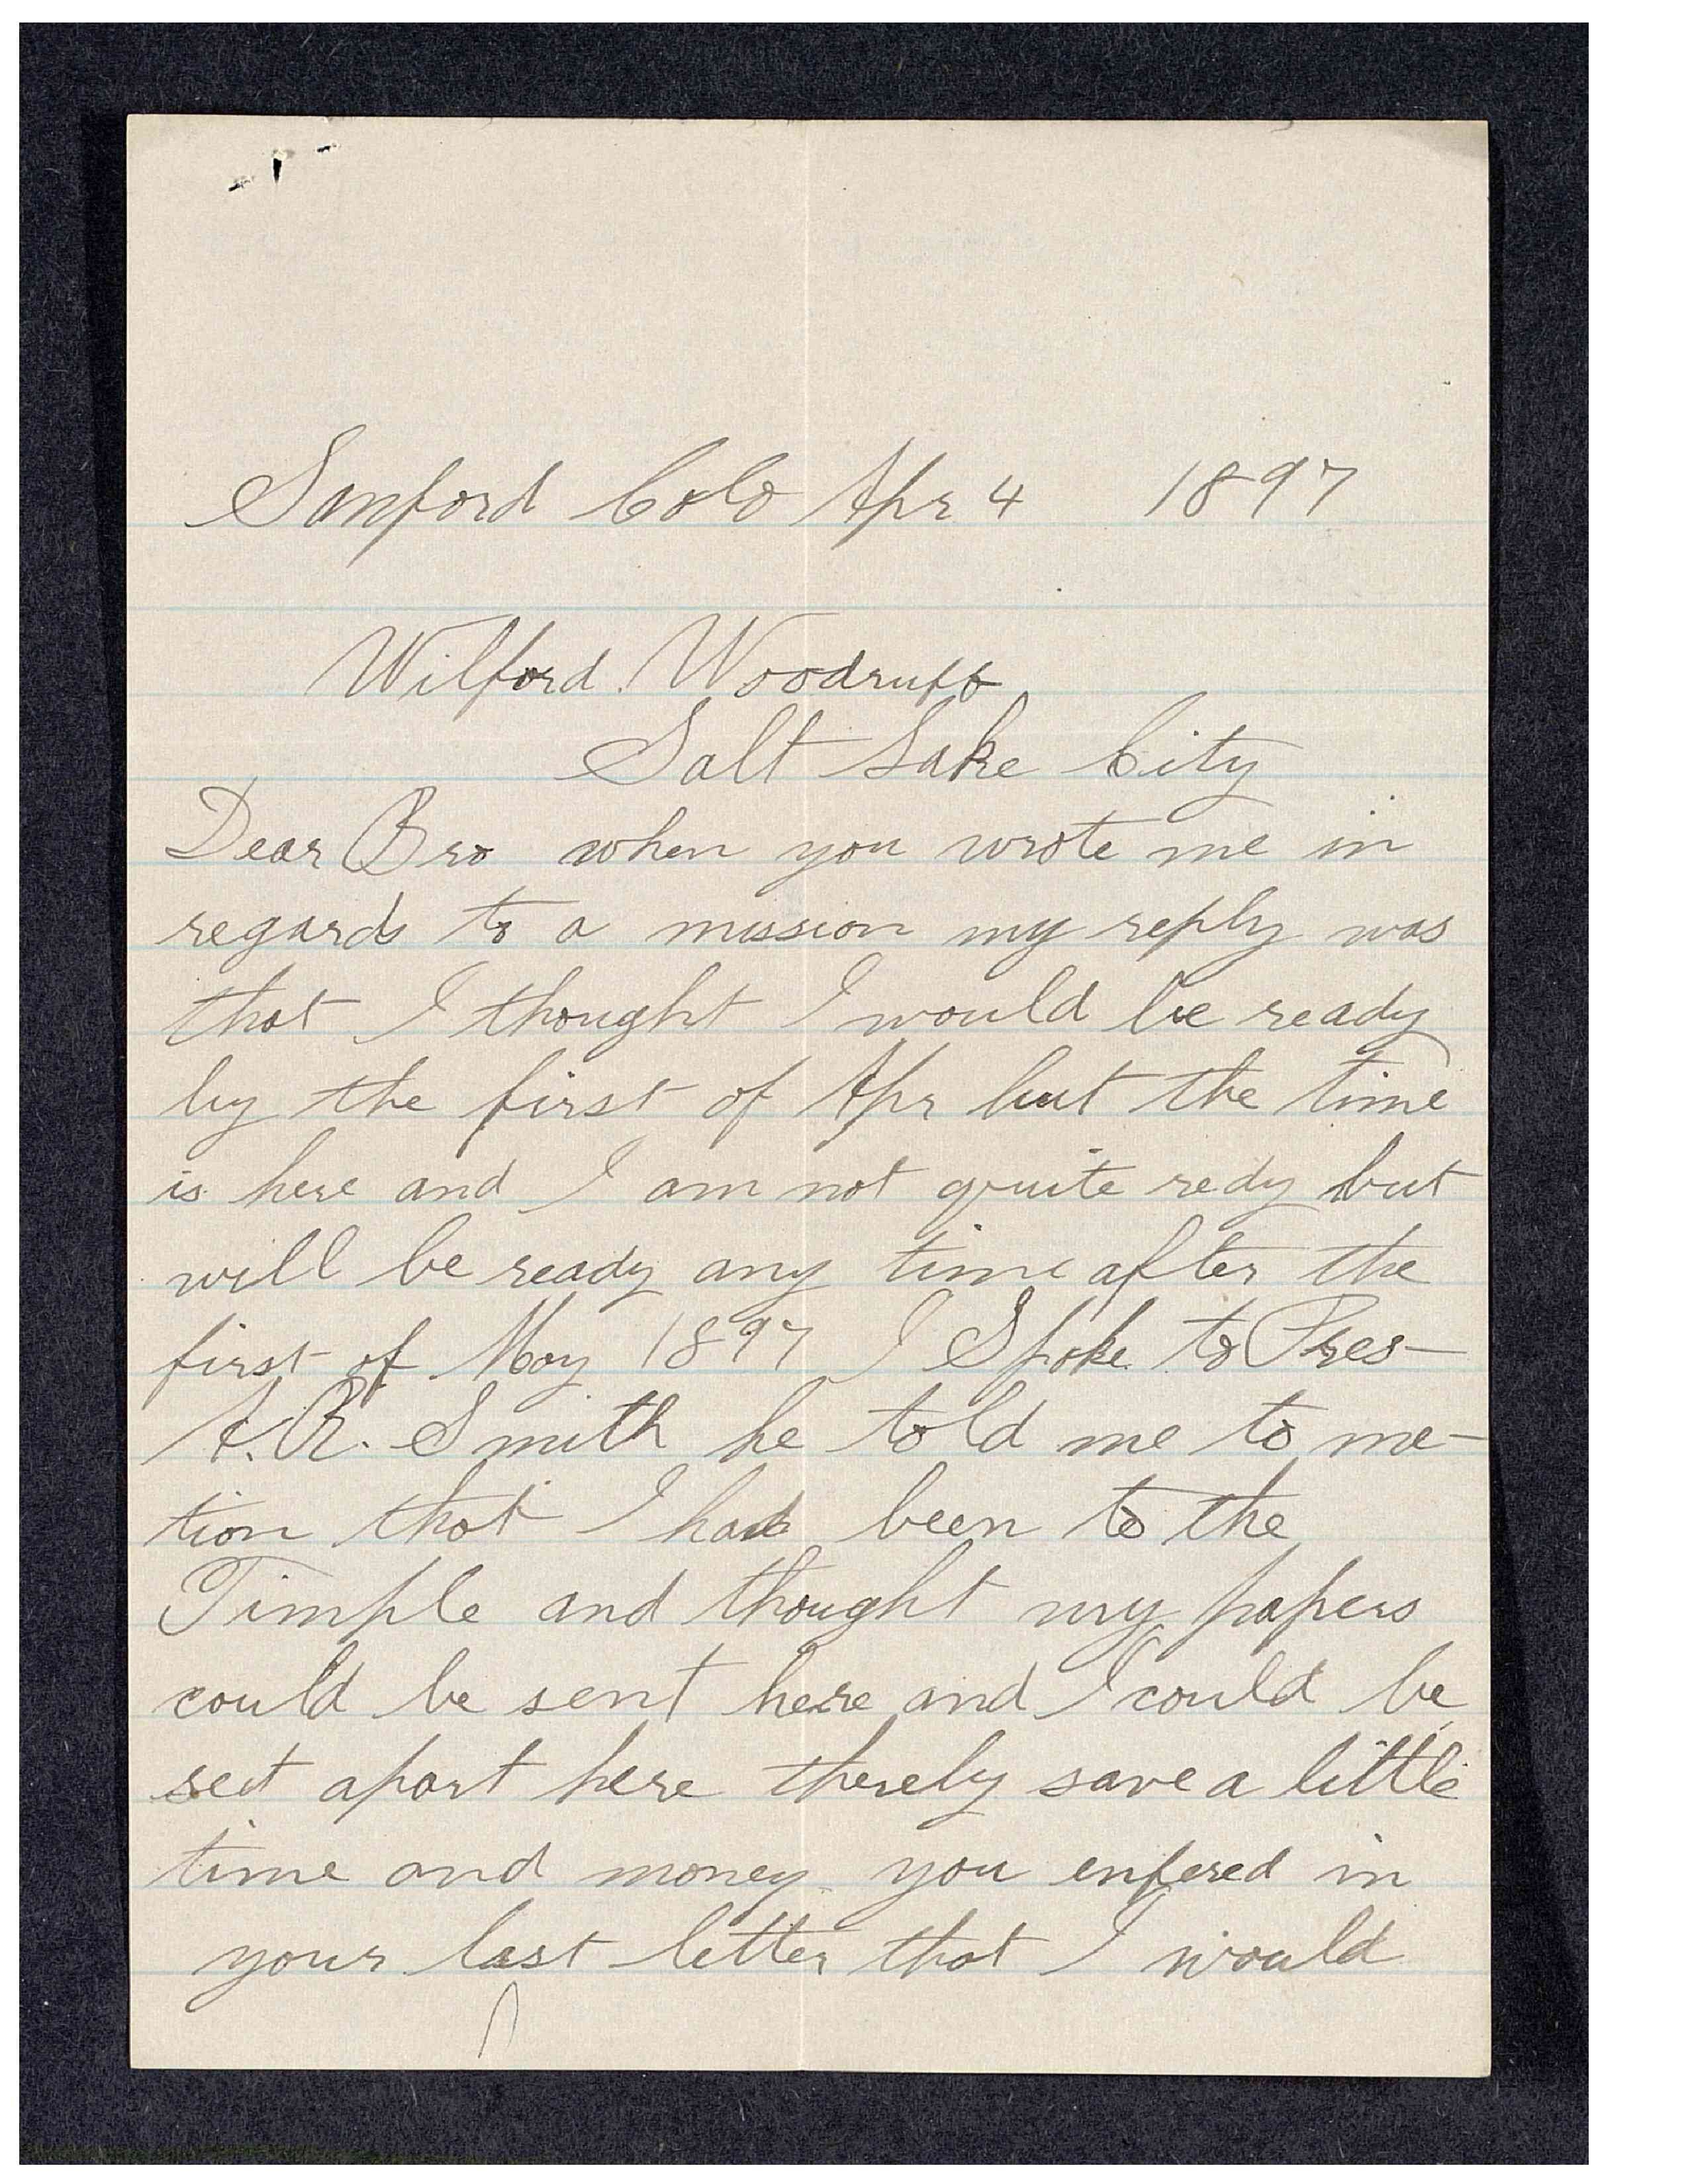 Sanford Colo Apr 4 1897
Wilford Woodruff
Salt Lake City
Dear Bro when you wrote me in
regards to a mission my reply was
that I thought I would be ready
by the first of Apr but the time
is here and I am not quite redy but
will be ready any time after the
first of May 1897 I Spoke to Pres—
A.R. Smith he told me to me-
tion that I had been to the
Timple and thought my papers
could be sent here and I could be
set apart here thereby save a little
time and money you enfered in
your last letter that I would